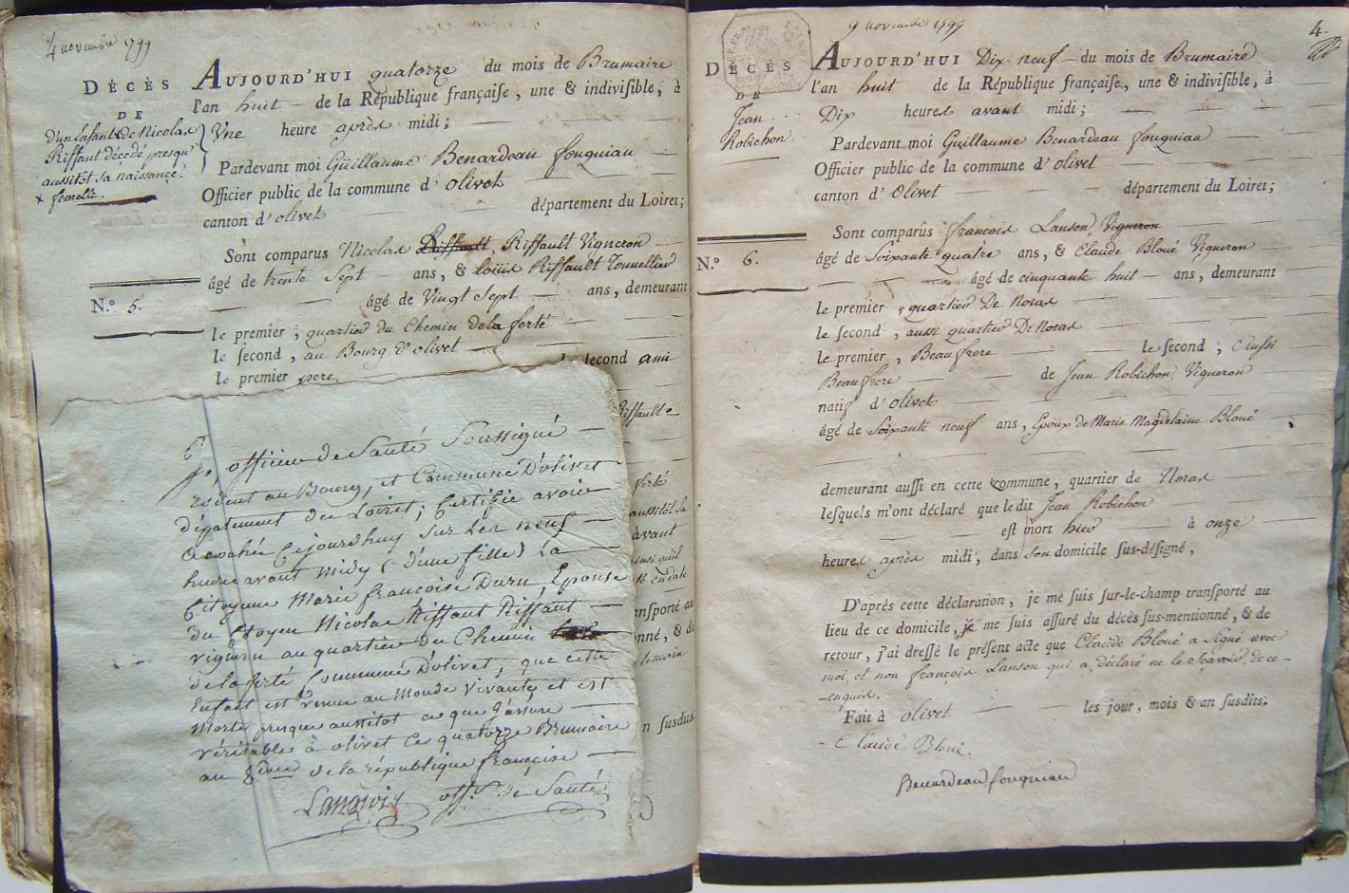 4 novembre 1799
DÉCÈS
DE
d'un Enfant de Nicolas
Riffaut décédé presqu'
aussitôt sa naissance.
+ femelle.
N.º 5.
AUJOURD'HUI quatorze du mois de Brumaire
l'an huit de la République française, une & indivisible, à
Une heure après midi;
Pardevant moi Guillaume Benardeau fouqniau
Officier public de la commune d'olivet
canton d'olivet département du Loiret;
Sont comparus Nicolas Riffault Vigneron
âgé de trente Sept ans, & louis Riffault Tonnellier
âgé de Vingt Sept ans, demeurant
le premier, quartier du Chemin de la ferté
le second, au Bourg d'olivet
le premier pere le second ami
Riffault
ferté
aussitôt sa
avant
transporté au
mentionné, & de
témoin
an susdits
Je officier de Santé Soussigné
résidant au Bourg, et Commune D'olivet
département du Loiret; Certifie avoir
accouché Cejourdhuy sur les neuf
heures avant midy (d'une fille) La
Citoyenne Marie françoise Duru, Epouse
du Citoyen Nicolas Riffaut Riffaut
vigneron au quartier du Chemin
de la ferté Commune D'olivet, que cette
Enfant est venue au Monde vivante et est
Morte presque aussitot ce que j'assure
véritable à olivet ce quatorze Brumaire
au 8 de la république françoise
Langlois off. de Santé
9 novembre 1799
4.
DÉCÈS
DE
Jean
Robichon
N.º 6.
AUJOURD'HUI Dix neuf du mois de Brumaire
l'an huit de la République française, une & indivisible, à
Dix heures avant midi;
Pardevant moi Guillaume Benardeau fouqniau
Officier public de la commune d'olivet
canton d'Olivet département du Loiret;
Sont comparus françois Lanson Vigneron
âgé de Soixante quatre ans, & Claude Bloué Vigneron
âgé de cinquante huit ans, demeurant
le premier, quartier De Noras
le second, aussi quartier De Noras
le premier, Beaufrere le second, aussi
Beaufrere de Jean Robichon Vigneron
natif d'olivet
âgé de Soixante neuf ans, Epoux de Marie Magdelaine Bloué
demeurant aussi en cette commune, quartier de Noras
lesquels m'ont déclaré que le dit Jean Robichon
est mort hier à onze
heures après midi, dans son domicile sus-désigné,
D'après cette déclaration, je me suis sur-le-champ transporté au
lieu de ce domicile, je me suis assuré du décès sus-mentionné, & de
retour, j'ai dressé le présent acte que Claude Bloué a signé avec
moi, et non françois Lanson qui a déclaré ne le sçavoir, de ce
enquis.
Fait à olivet les jour, mois & an susdits.
Claude Bloué
Benardeau fouqniau